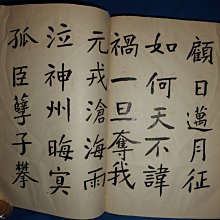 顧日邁月征
如何天不諱
禍一旦奪我
元戎滄海雨
泣神州晦冥
孤臣孽子攀